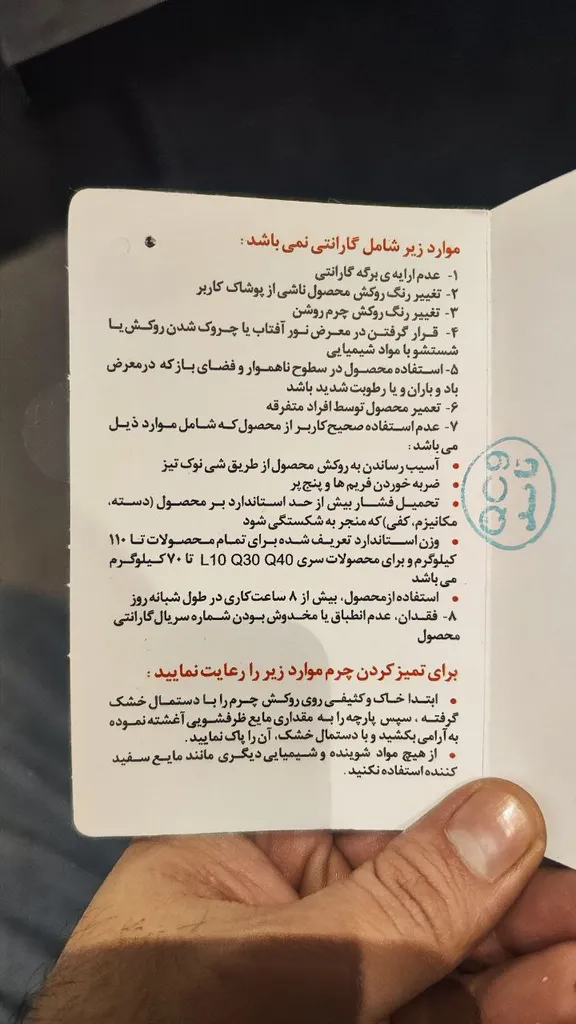 موارد زیر شامل گارانتی نمی باشد :
۱- عدم ارایه ی برگه گارانتی
۲- تغییر رنگ روکش محصول ناشی از پوشاک کاربر
۳- تغییر رنگ روکش چرم روشن
۴- قرار گرفتن در معرض نور آفتاب یا چروک شدن روکش یا
شستشو با مواد شیمیایی
۵- استفاده محصول در سطوح ناهموار و فضای باز که درمعرض
باد و باران و یا رطوبت شدید باشد
۶- تعمیر محصول توسط افراد متفرقه
۷- عدم استفاده صحیح کاربر از محصول که شامل موارد ذیل
می باشد :
• آسیب رساندن به روکش محصول از طریق شی نوک تیز
• ضربه خوردن فریم ها و پنج پر
• تحمیل فشار بیش از حد استاندارد بر محصول (دسته،
مکانیزم، کفی) که منجر به شکستگی شود
• وزن استاندارد تعریف شده برای تمام محصولات تا ۱۱۰
کیلوگرم و برای محصولات سری L10 Q30 Q40 تا ۷۰ کیلوگرم
می باشد
• استفاده ازمحصول، بیش از ۸ ساعت کاری در طول شبانه روز
۸- فقدان، عدم انطباق یا مخدوش بودن شماره سریال گارانتی
محصول
برای تمیز کردن چرم موارد زیر را رعایت نمایید :
• ابتدا خاک و کثیفی روی روکش چرم را با دستمال خشک
گرفته ، سپس پارچه را به مقداری مایع ظرفشویی آغشته نموده
به آرامی بکشید و با دستمال خشک، آن را پاک نمایید .
• از هیچ مواد شوینده و شیمیایی دیگری مانند مایع سفید
کننده استفاده نکنید .
QC9
تایید